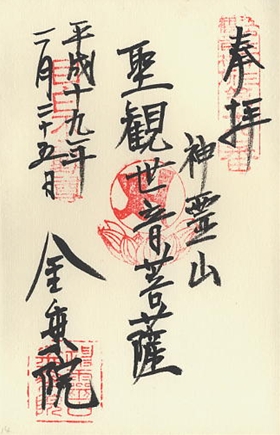 奉拝
神霊山
聖観世音菩薩
平成十九年
二月二十五日
金乗院